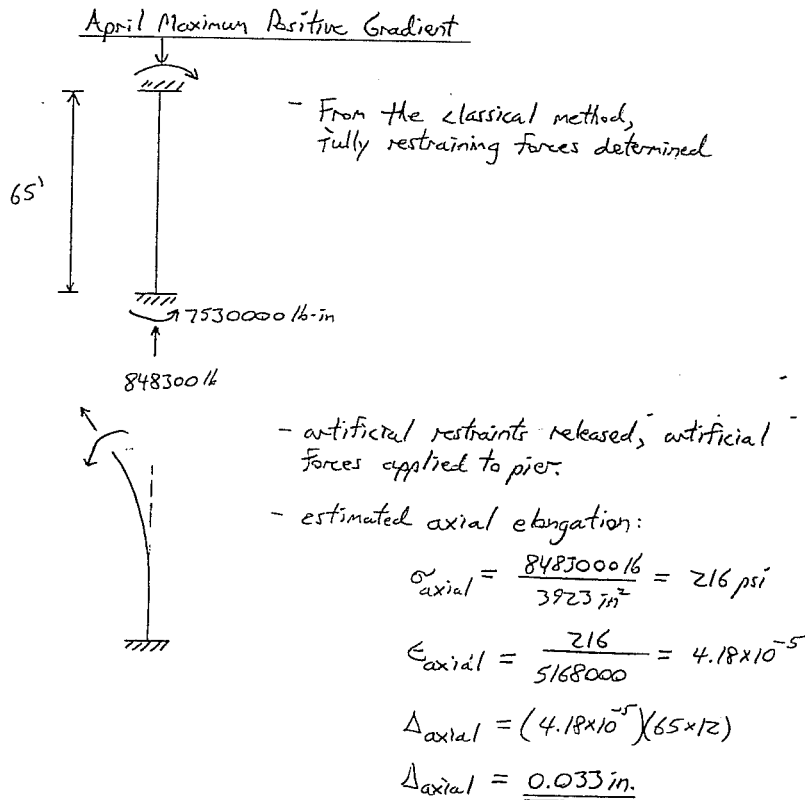 April Maximum Positive Gradient
- From the classical method,
fully restraining forces determined
65'
7530000 lb-in
848300 lb
- artificial restraints released, artificial
forces applied to pier.
- estimated axial elongation:
σaxial = 848300 lb / 3923 in² = 216 psi
ϵaxial = 216 / 5168000 = 4.18x10⁻⁵
Δaxial = (4.18x10⁻⁵)(65x12)
Δaxial = 0.033 in.